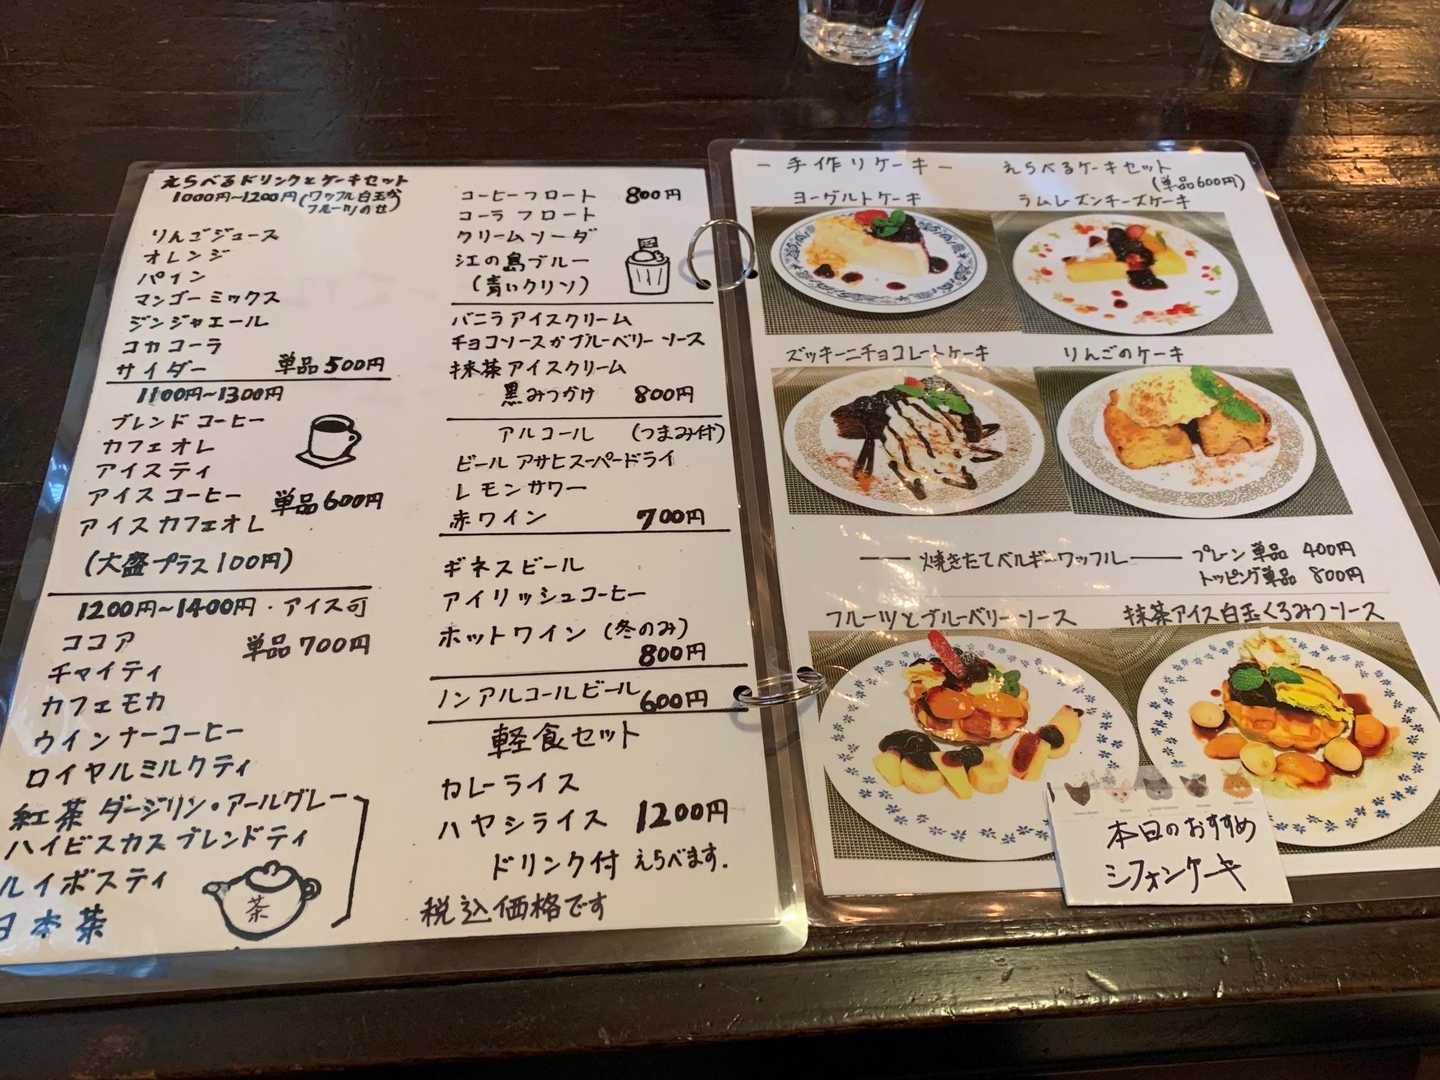 えらべるドリンクとケーキセット
1000円~1200円(ワッフル白玉か
フルーツのせ)
りんごジュース
オレンジ
パイン
マンゴーミックス
ジンジャエール
コカコーラ
サイダー 単品500円
1100円~1300円
ブレンドコーヒー
カフェオレ
アイスティ
アイスコーヒー 単品600円
アイスカフェオレ
(大盛プラス100円)
1200円~1400円・アイス可
ココア 単品700円
チャイティ
カフェモカ
ウインナーコーヒー
ロイヤルミルクティ
紅茶 ダージリン・アールグレー
ハイビスカスブレンドティ
ルイボスティ
日本茶
茶
コーヒーフロート 800円
コーラフロート
クリームソーダ
江の島ブルー
(青いクリソ)
バニラアイスクリーム
チョコソースかブルーベリーソース
抹茶アイスクリーム
黒みつがけ 800円
アルコール (つまみ付)
ビール アサヒスーパードライ
レモンサワー
赤ワイン 700円
ギネスビール
アイリッシュコーヒー
ホットワイン (冬のみ)
800円
ノンアルコールビール 600円
軽食セット
カレーライス
ハヤシライス 1200円
ドリンク付 えらべます.
税込価格です
- 手作りケーキ - えらべるケーキセット
(単品600円)
ヨーグルトケーキ ラムレーズンチーズケーキ
ズッキーニチョコレートケーキ りんごのケーキ
焼きたてベルギーワッフル プレーン単品 400円
トッピング単品 800円
フルーツとブルーベリーソース 抹茶アイス白玉くろみつソース
本日のおすすめ
シフォンケーキ